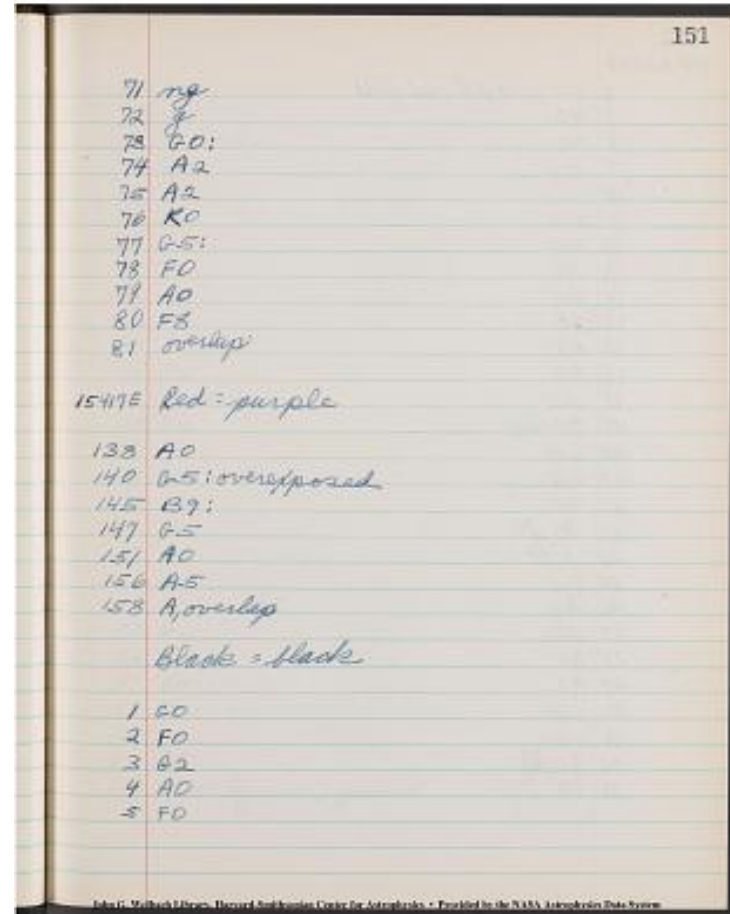 151
71 ng
72 g
73 G0:
74 A2
75 A2
76 K0
77 G5:
78 F0
79 A0
80 F8
81 overlap
15417E Red = purple
138 A0
140 G5: overexposed
145 B9:
147 G5
151 A0
156 A5
158 A, overlap
Black = black
1 G0
2 F0
3 G2
4 A0
5 F0
John G. Wolbach Library, Harvard-Smithsonian Center for Astrophysics • Provided by the NASA Astrophysics Data System